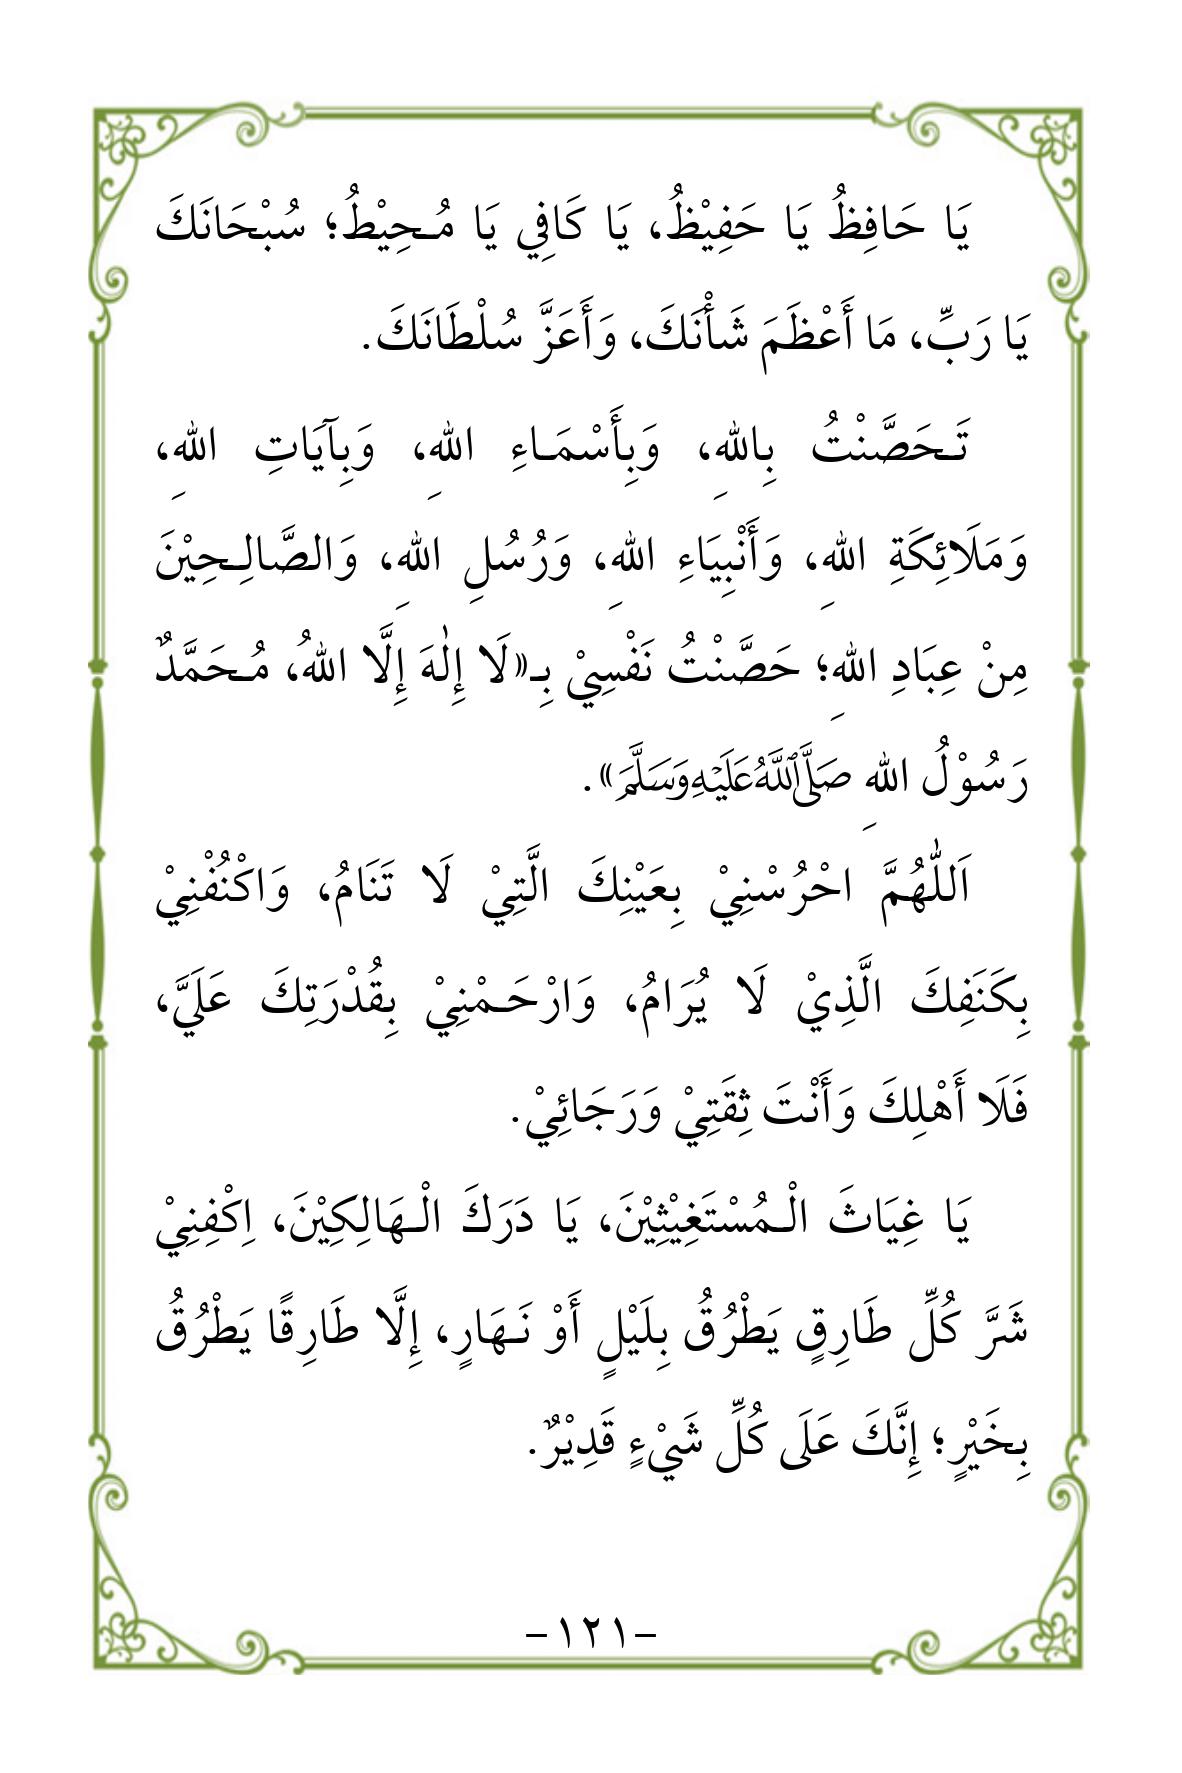 يَا حَافِظُ يَا حَفِيْظُ، يَا كَافِي يَا مُـحِيْطُ؛ سُبْحَانَكَ
يَا رَبِّ، مَا أَعْظَمَ شَأْنَكَ، وَأَعَزَّ سُلْطَانَكَ.
تَـحَصَّنْتُ بِاللهِ، وَبِأَسْمَـاءِ اللهِ، وَبِآيَاتِ اللهِ،
وَمَلَائِكَةِ اللهِ، وَأَنْبِيَاءِ اللهِ، وَرُسُلِ اللهِ، وَالصَّالِـحِيْنَ
مِنْ عِبَادِ اللهِ؛ حَصَّنْتُ نَفْسِيْ بِـ«لَا إِلٰهَ إِلَّا اللهُ، مُـحَمَّدٌ
رَسُوْلُ اللهِ صَلَّى اللَّهُ عَلَيْهِ وَسَلَّمَ».
اَللّٰهُمَّ احْرُسْنِيْ بِعَيْنِكَ الَّتِيْ لَا تَنَامُ، وَاكْنُفْنِيْ
بِكَنَفِكَ الَّذِيْ لَا يُرَامُ، وَارْحَـمْنِيْ بِقُدْرَتِكَ عَلَيَّ،
فَلَا أَهْلِكَ وَأَنْتَ ثِقَتِيْ وَرَجَائِيْ.
يَا غِيَاثَ الْـمُسْتَغِيْثِيْنَ، يَا دَرَكَ الْـهَالِكِيْنَ، اِكْفِنِيْ
شَرَّ كُلِّ طَارِقٍ يَطْرُقُ بِلَيْلٍ أَوْ نَـهَارٍ، إِلَّا طَارِقًا يَطْرُقُ
بِخَيْرٍ؛ إِنَّكَ عَلَى كُلِّ شَيْءٍ قَدِيْرٌ.
-١٢١-